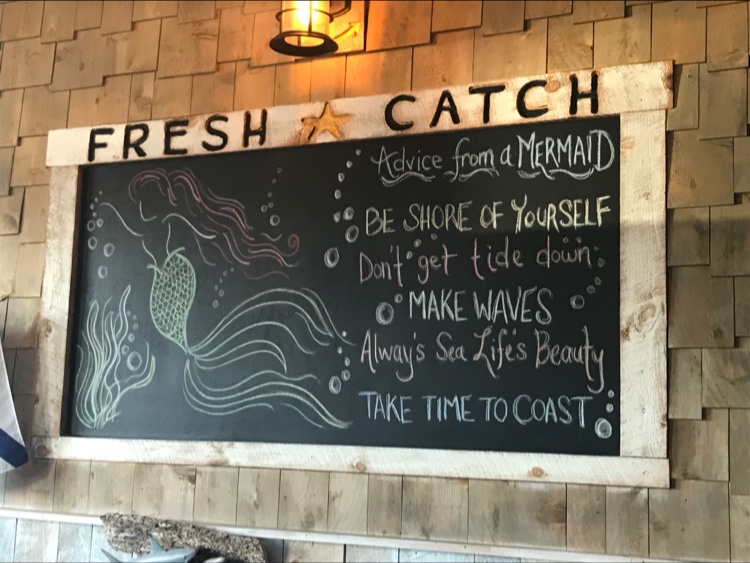 FRESH CATCH
Advice from a MERMAID
BE SHORE OF YOURSELF
Don't get tide down.
MAKE WAVES
Alway's Sea Life's Beauty
TAKE TIME TO COAST